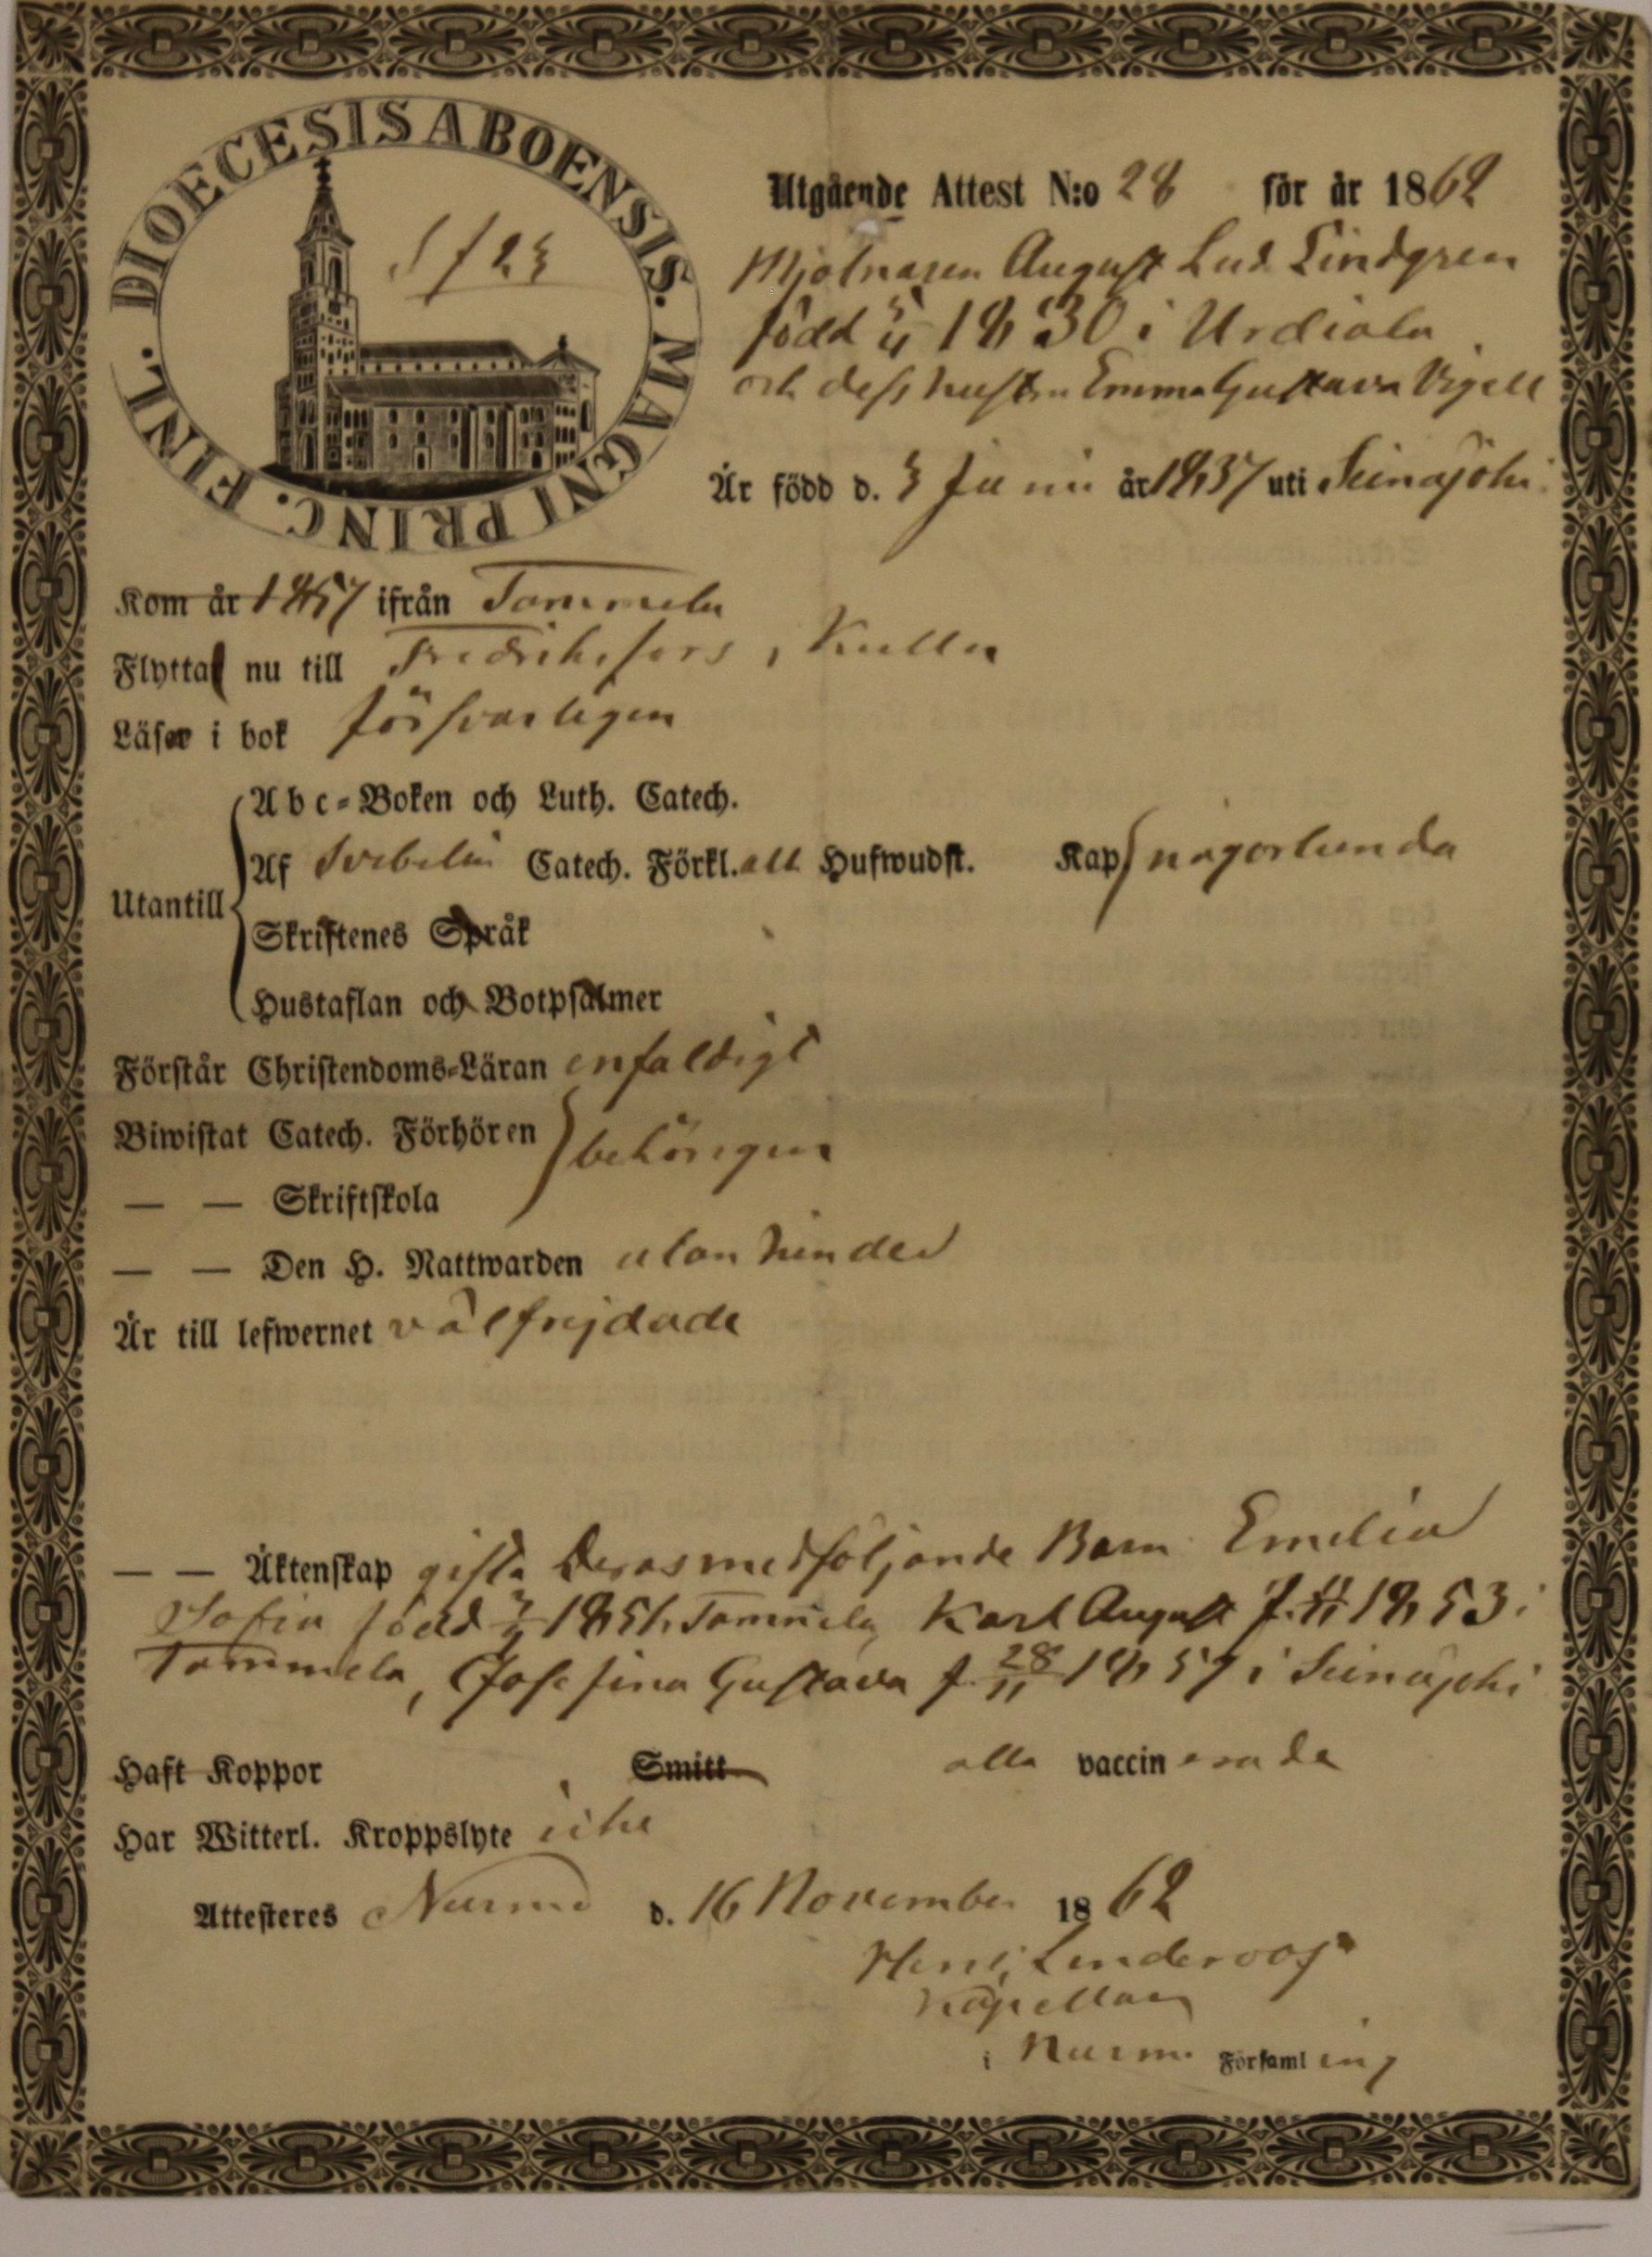 DIOECESIS ABOENSIS. MAGNI PRINC. FINL.
Utgående Attest N:o 28 för år 1862
Mjölnaren August Lud Lindgren
född 5/4 1830 i Urdiala
och dess hustru Emma Gustava Vigell
Är född d. 5 Juni år 1837 uti Seinäjoki
Kom år 1857 ifrån Tammela
Flytta nu till Fredriksfors, Kulla
Läser i bok försvarligen
Utantill
Abc-Boken och Luth. Catech.
Af Svebelii Catech. Förkl. all Hufwudst. Kap någorlunda
Skriftenes Språk
Hustaflan och Botpsalmer
Förstår Christendoms-Läran enfaldigt
Biwistat Catech. Förhören behörigen
— — Skriftskola
— — Den H. Nattwarden utan hinder
Är till lefwernet välfrejdade
— — Äktenskap gifta Deras medföljande Barn Emilia
Sofia född 1851 Tammela, Karl August f. 11/11 1853 i
Tammela, Josefina Gustava f. 28/11 1857 i Seinäjoki
Haft Koppor Smitt alla vaccinerade
Har Witterl. Kroppslyte icke
Attesteres Nurmo d. 16 November 1862
Henr. Lenderoos
Kapellan
i Nurmo Församling